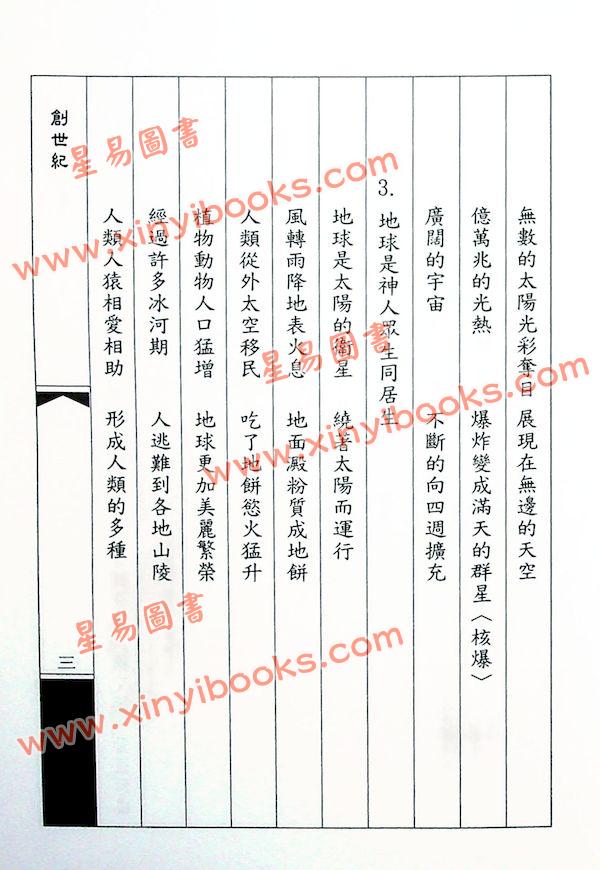 無數的太陽光彩奪目 展現在無邊的天空
億萬兆的光熱 爆炸變成滿天的群星〈核爆〉
廣闊的宇宙 不斷的向四週擴充
3. 地球是神人眾生同居生
地球是太陽的衛星 繞著太陽而運行
風轉雨降地表火息 地面澱粉質成地餅
人類從外太空移民 吃了地餅慾火猛升
植物動物人口猛增 地球更加美麗繁榮
經過許多冰河期 人逃難到各地山陵
人類人猿相愛相助 形成人類的多種
創世紀
三
星易圖書
www.xinyibooks.com
星易圖書
www.xinyibooks.com
星易圖書
www.xinyibooks.com